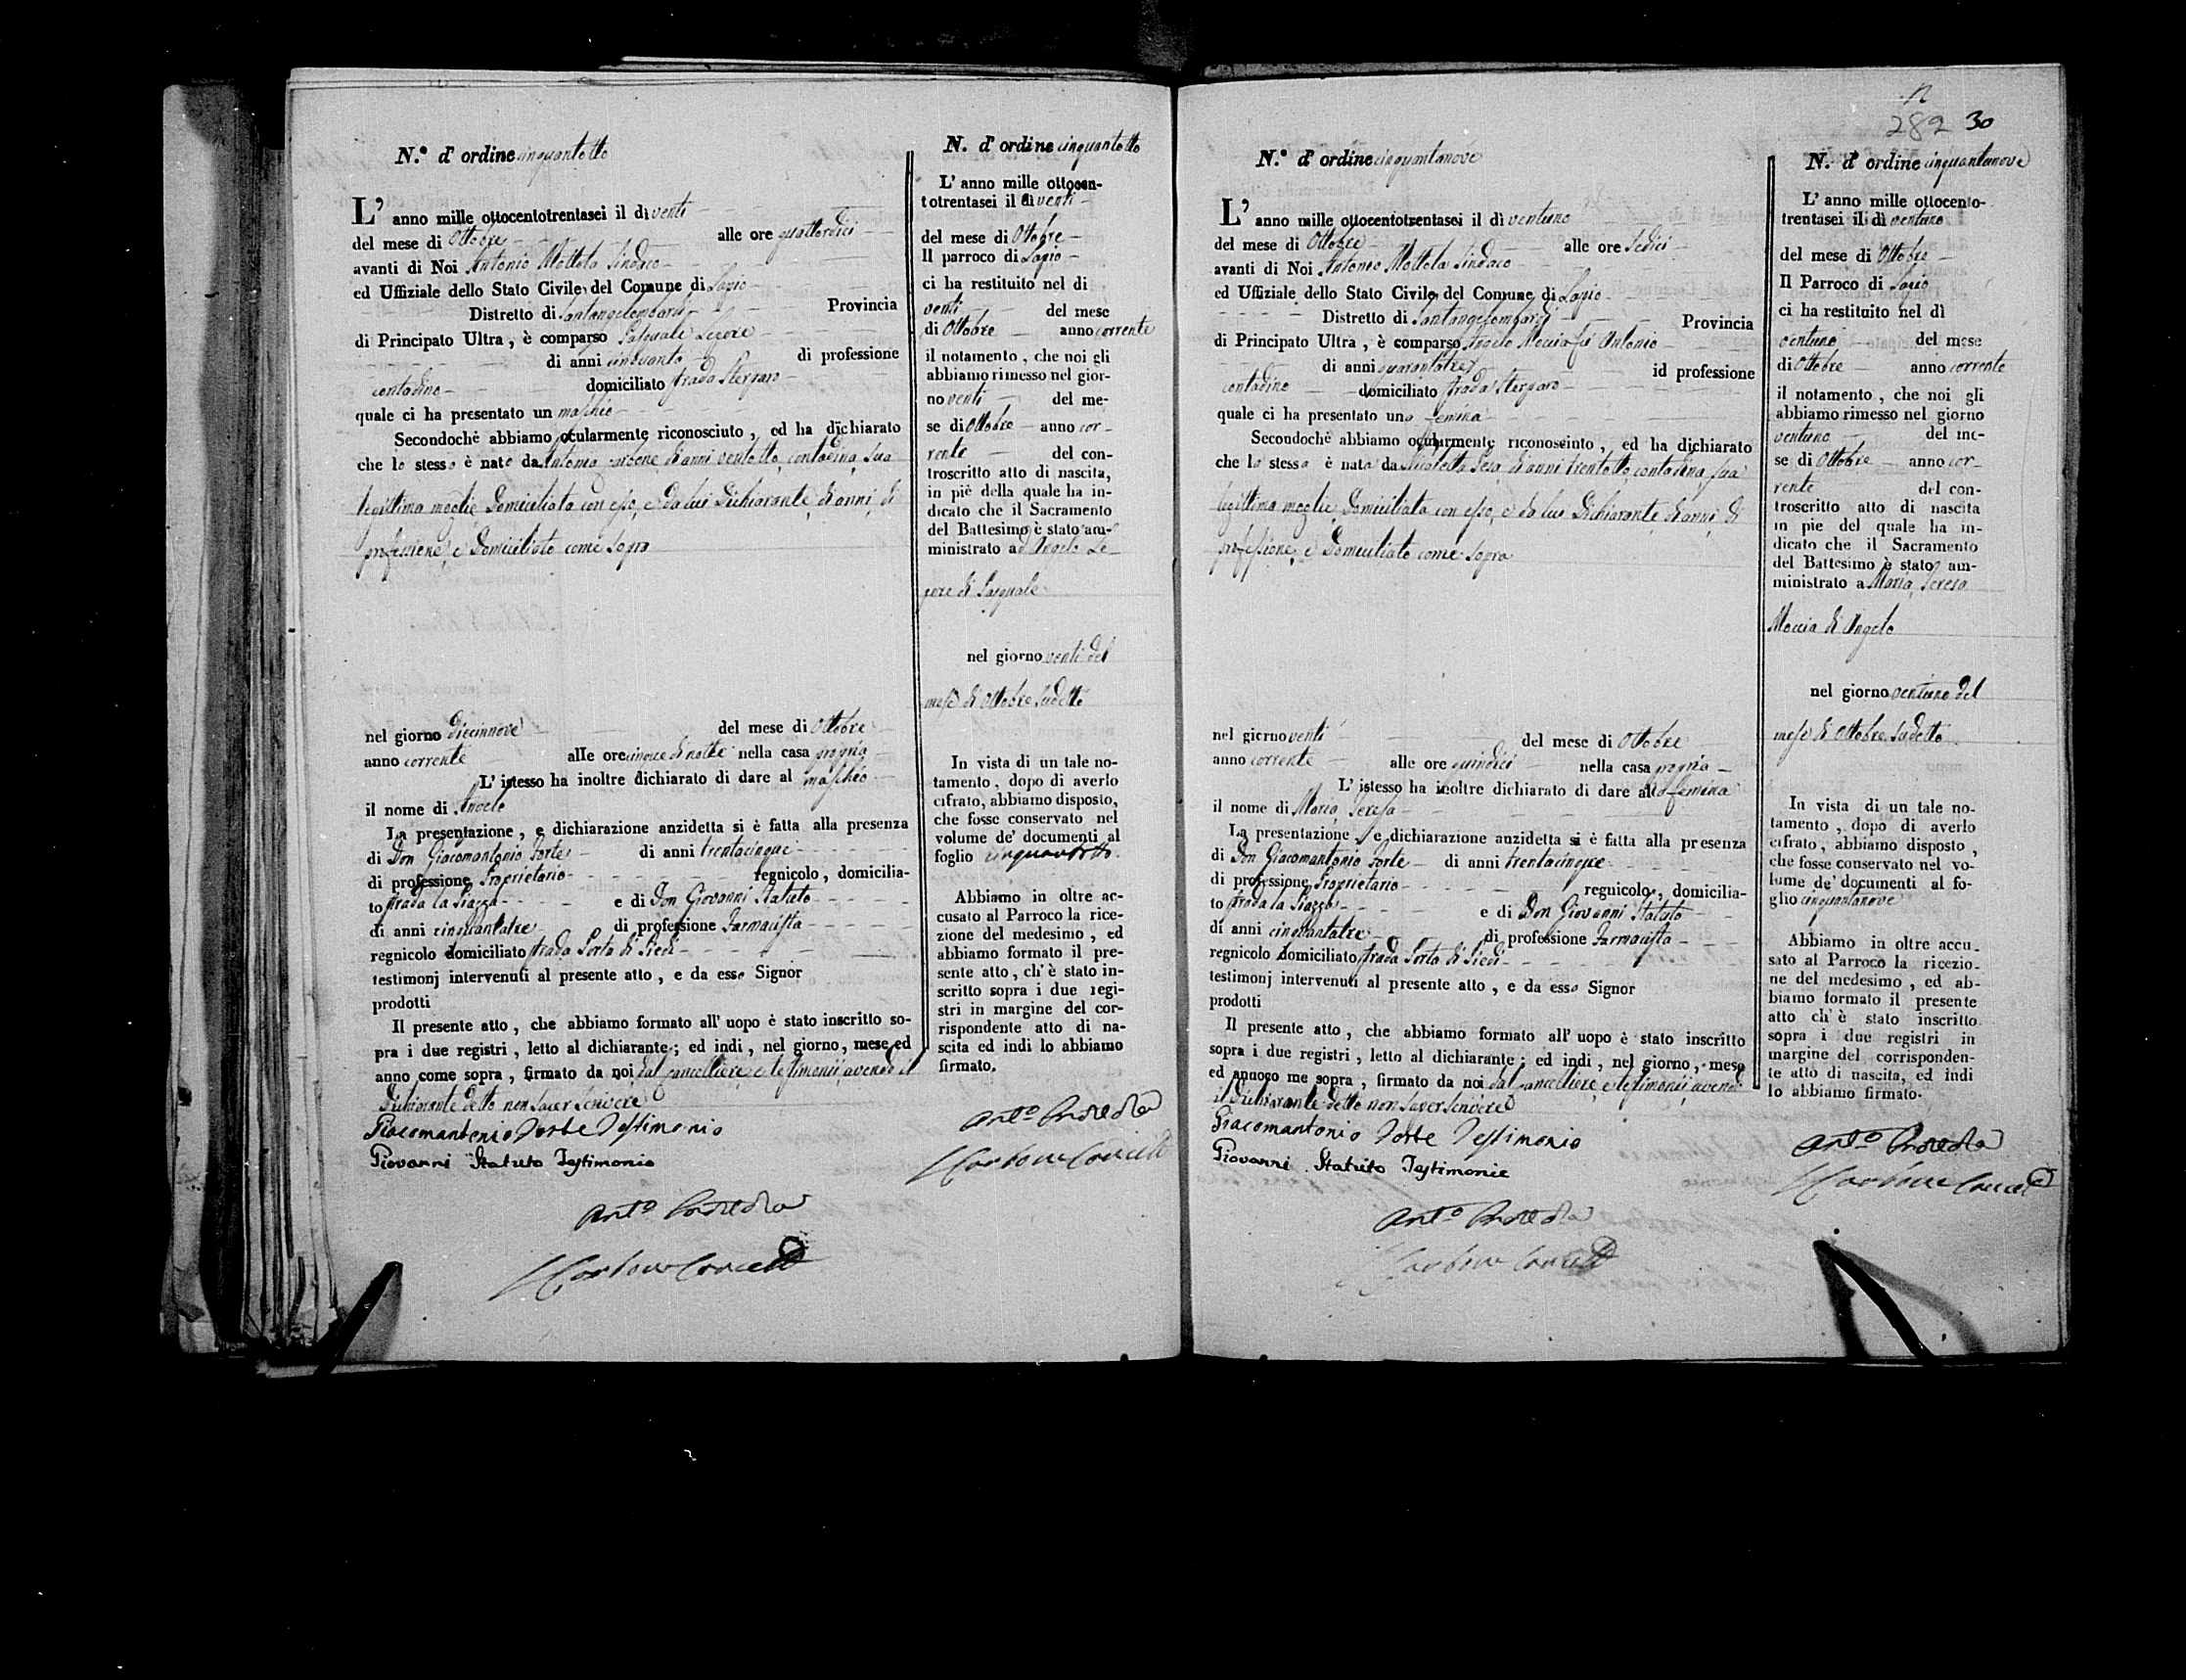 N.º d' ordine cinquantotto
L' anno mille ottocentotrentasei il dì venti
del mese di Ottobre alle ore quattordici
avanti di Noi Antonio Mottola Sindaco
ed Uffiziale dello Stato Civile del Comune di Lapio
Distretto di Santangelombardi Provincia
di Principato Ultra, è comparso Pasquale Lepore
di anni cinquanta di professione
contadino domiciliato strada Stergaro
quale ci ha presentato un maschio
Secondochè abbiamo ocularmente riconosciuto, ed ha dichiarato
che lo stesso è nato da Antonia Carbone di anni ventotto, contadina, sua
legittima moglie domiciliata con esso, e da lui Dichiarante, di anni, di
professione, e domiciliato come sopra
nel giorno diecinnove del mese di Ottobre
anno corrente alle ore cinque di notte nella casa propria
L' istesso ha inoltre dichiarato di dare al maschio
il nome di Angelo
La presentazione, e dichiarazione anzidetta si è fatta alla presenza
di Don Giacomantonio Forte di anni trentacinque
di professione Proprietario regnicolo, domicilia-
to strada la Piazza e di Don Giovanni Statuto
di anni cinquantatre di professione Farmacista
regnicolo domiciliato strada Porta di Piedi
testimonj intervenuti al presente atto, e da esso Signor
prodotti
Il presente atto, che abbiamo formato all' uopo è stato inscritto so-
pra i due registri, letto al dichiarante; ed indi, nel giorno, mese ed
anno come sopra, firmato da noi dal cancelliere, e testimonii, avendo il
Dichiarante detto non saper scrivere
Giacomantonio Forte Testimonio
Giovanni Statuto Testimonio
N. d' ordine cinquantotto
L' anno mille ottocen-
totrentasei il dì venti
del mese di Ottobre
Il parroco di Lapio
ci ha restituito nel di
venti del mese
di Ottobre anno corrente
il notamento, che noi gli
abbiamo rimesso nel gior-
no venti del me-
se di Ottobre anno cor-
rente del con-
troscritto atto di nascita,
in piè della quale ha in-
dicato che il Sacramento
del Battesimo è stato am-
ministrato ad Angelo Le-
pore di Pasquale
nel giorno venti del
mese di Ottobre sudetto
In vista di un tale no-
tamento, dopo di averlo
cifrato, abbiamo disposto,
che fosse conservato nel
volume de' documenti al
foglio cinquantotto
Abbiamo in oltre ac-
cusato al Parroco la rice-
zione del medesimo, ed
abbiamo formato il pre-
sente atto, ch' è stato in-
scritto sopra i due regi-
stri in margine del cor-
rispondente atto di na-
scita ed indi lo abbiamo
firmato.
282 30
N.º d' ordine cinquantanove
L' anno mille ottocentotrentasei il dì ventuno
del mese di Ottobre alle ore Sedici
avanti di Noi Antonio Mottola Sindaco
ed Uffiziale dello Stato Civile del Comune di Lapio
Distretto di Santangelombardi Provincia
di Principato Ultra, è comparso Angelo Moccia fu Antonio
di anni quarantatre id professione
contadino domiciliato strada Stergaro
quale ci ha presentato una femina
Secondochè abbiamo ocularmente riconoscinto, ed ha dichiarato
che la stessa è nata da Nicoletta di anni trentotto, contadina, sua
legittima moglie, domiciliata con esso, e da lui Dichiarante, di anni, di
professione, e domiciliato come sopra
nel giorno venti del mese di Ottobre
anno corrente alle ore quindici nella casa propria
L' istesso ha inoltre dichiarato di dare alla femina
il nome di Maria Teresa
La presentazione, e dichiarazione anzidetta si è fatta alla presenza
di Don Giacomantonio Forte di anni trentacinque
di professione Proprietario regnicolo, domicilia-
to strada la Piazza e di Don Giovanni Statuto
di anni cinquantatre di professione Farmacista
regnicolo domiciliato strada Porta di Piedi
testimonj intervenuti al presente atto, e da esso Signor
prodotti
Il presente atto, che abbiamo formato all' uopo è stato inscritto
sopra i due registri, letto al dichiarante; ed indi, nel giorno, mese
ed annoco me sopra, firmato da noi dal cancelliere, e testimonii, avendo
il Dichiarante detto non saper scrivere
Giacomantonio Forte Testimonio
Giovanni Statuto Testimonio
N. d' ordine cinquantanove
L' anno mille ottocento-
trentasei il dì ventuno
del mese di Ottobre
Il Parroco di Lapio
ci ha restituito nel dì
ventuno del mese
di Ottobre anno corrente
il notamento, che noi gli
abbiamo rimesso nel giorno
ventuno del me-
se di Ottobre anno cor-
rente del con-
troscritto atto di nascita
in pie del quale ha in-
dicato che il Sacramento
del Battesimo è stato am-
ministrato a Maria Teresa
Moccia di Angelo
nel giorno ventuno del
mese di Ottobre sudetto
In vista di un tale no-
tamento, dopo di averlo
cifrato, abbiamo disposto,
che fosse conservato nel vo-
lume de' documenti al fo-
glio cinquantanove
Abbiamo in oltre accu-
sato al Parroco la ricezio-
ne del medesimo, ed ab-
biamo formato il presente
atto ch' è stato inscritto
sopra i due registri in
margine del corrisponden-
te atto di nascita, ed indi
lo abbiamo firmato.